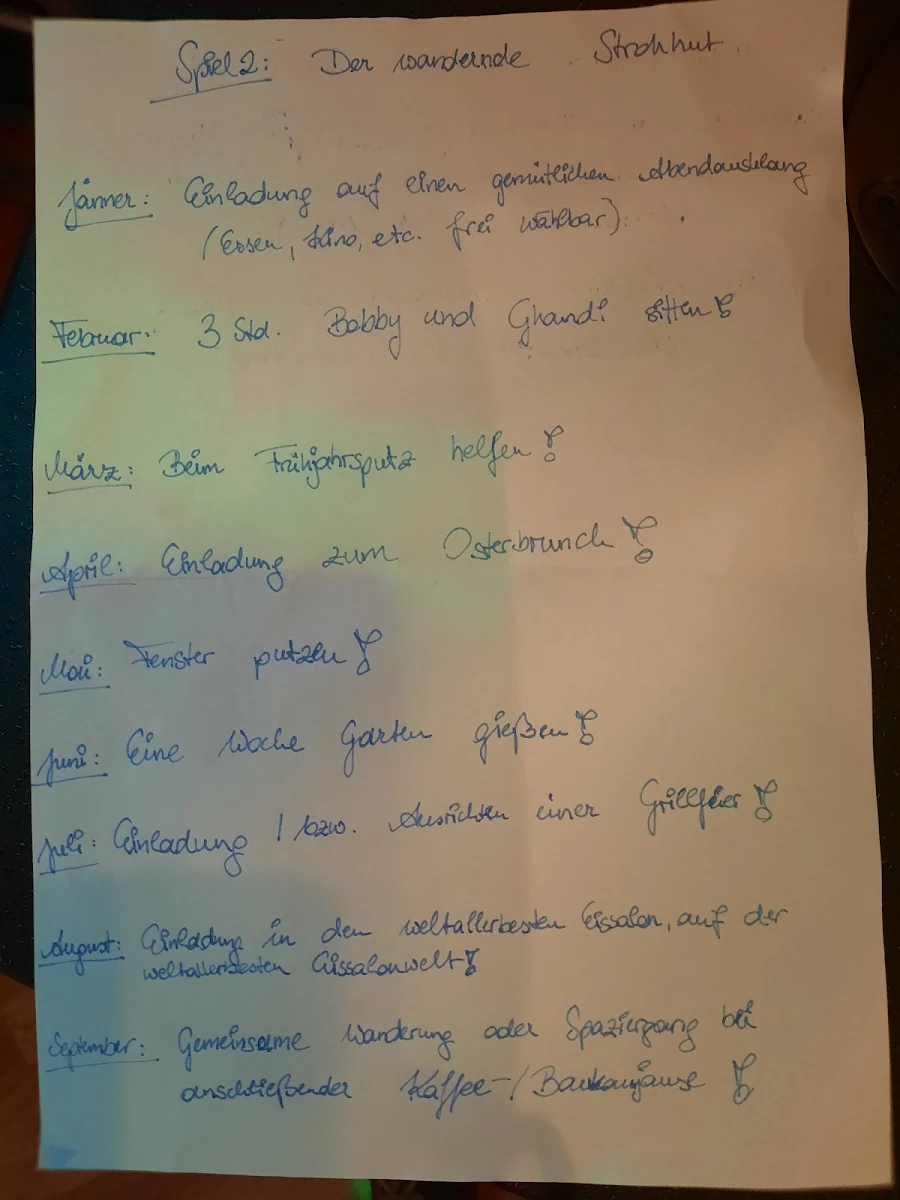 Spiel 2: Der wandernde Strohhut
Jänner: Einladung auf einen gemütlichen Abendausklang
(Essen, Kino, etc. frei wählbar)
Februar: 3 Std. Bobby und Ghandi sitten!
März: Beim Frühjahrsputz helfen!
April: Einladung zum Osterbrunch!
Mai: Fenster putzen!
Juni: Eine Woche Garten gießen!
Juli: Einladung / bzw. Ausrichten einer Grillfeier!
August: Einladung in den weltallerbesten Eissalon, auf der
weltallerbesten Eissalonwelt!
September: Gemeinsame Wanderung oder Spaziergang bei
anschließender Kaffee-/